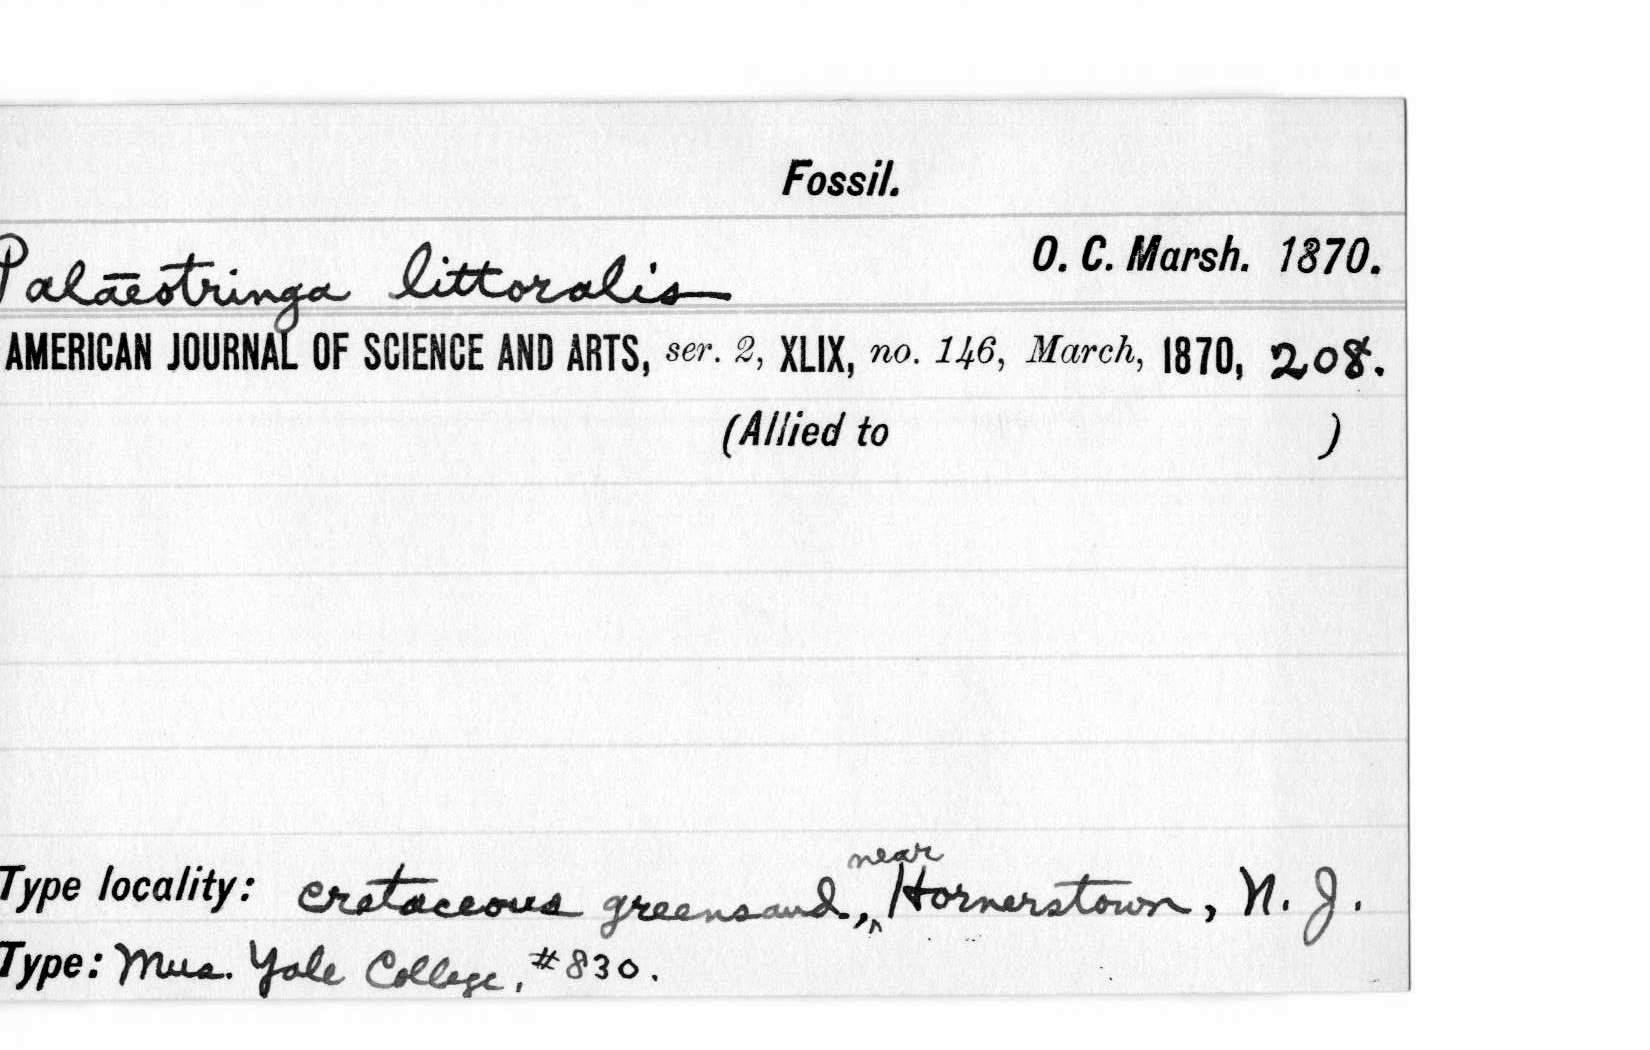 Fossil.
Palaeotringa littoralis O. C. Marsh. 1870.
AMERICAN JOURNAL OF SCIENCE AND ARTS, ser. 2, XLIX, no. 146, March, 1870, 208.
(Allied to )
Type locality: Cretaceous greensand, near Hornerstown, N. J.
Type: Mus. Yale College, #830.